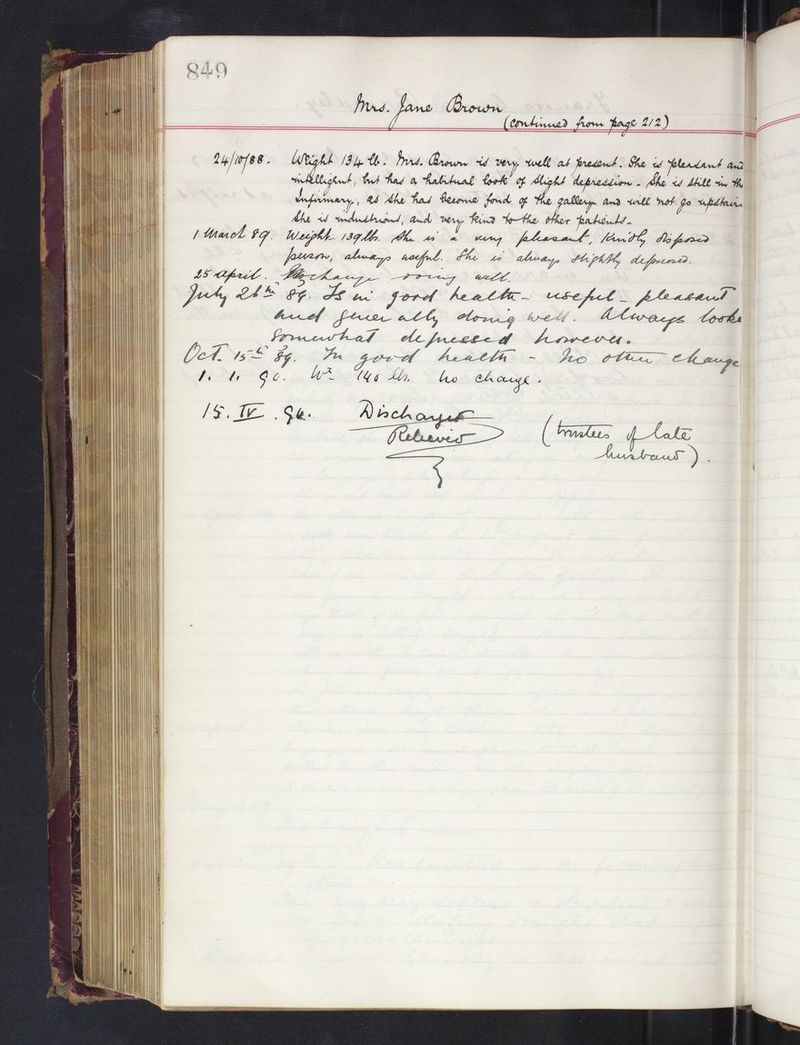 849
Mrs. Jane Brown
(continued from page 212)
24/10/88. Weight 134 lb. Mrs. Brown is very well at present. She is pleasant and
intelligent, but has a habitual look of slight depression - She is still in the
Infirmary, as she has become fond of the gallery and will not go upstairs
She is industrious, and very kind to the other patients -
1 March 89. Weight 139 lbs. She is a very pleasant, kindly disposed
person, always useful. She is always slightly depressed.
25 April. No change doing well.
July 26th 89. Is in good health - useful - pleasant
and generally doing well. Always looks
somewhat depressed however.
Oct. 15th 89. In good health - No other change
1. 1. 90. Wt 140 lbs. No change.
15. IV. 90. Discharged (trustees of late
Relieved husband).